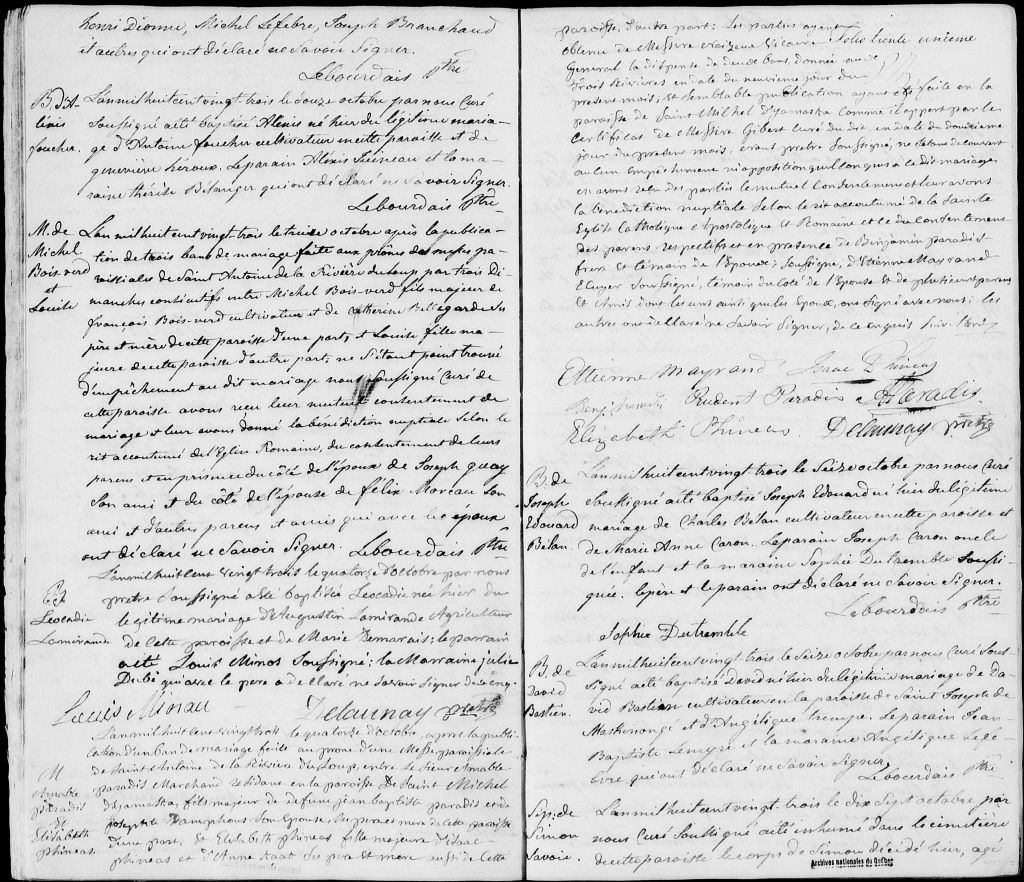 henri Dionne, Michel Lefebre, Joseph Branchaud
et autres qui ont déclaré ne savoir signer.
Lebourdais Ptre
B. d'A-
lexis
foucher.
L'an mil huit cent vingt trois le douze octobre par nous Curé
soussigné a été baptisé Alexis né hier du légitime maria-
ge d'Antoine foucher cultivateur en cette paroisse et de
genevieve héroux. Le parain Alexis et la ma-
raine thérèse Bélanger qui ont déclaré ne savoir signer.
Lebourdais Ptre
M. de
Michel
Bois-verd
et
Louise
L'an mil huit cent vingt-trois le treize octobre après la publica-
tion de trois bans de mariage faite aux prônes des messes pa-
roissiales de Saint Antoine de la Rivière du Loup par trois Di-
manches consécutifs entre Michel Bois-verd fils majeur de
françois Bois-verd cultivateur et de Catherine Bellegarde ses
père et mère de cette paroisse d'une part, et Louise fille ma-
jeure de cette paroisse d'autre part; ne s'étant point trouvé
d'empêchement au dit mariage nous soussigné Curé de
cette paroisse avons reçu leur mutuel consentement de
mariage et leur avons donné la bénédiction nuptiale selon le
rit accoutumé de l'Eglise Romaine, du consentement de leurs
parens et en présence du côté de l'époux de Joseph
son ami et du côté de l'épouse de félix Moreau son
ami et d'autres parens et amis qui avec les époux
ont déclaré ne savoir signer. Lebourdais Ptre
B
Leocadie
Lamirande
L'an mil huit cens vingt trois le quatorze d'octobre par nous
prêtre soussigné a été baptisée Leocadie née hier du
légitime mariage d'Augustin Lamirande Agriculteur
de cette paroisse et de Marie Demarais; le parrain
a été Louis Minos soussigné; la Marraine julie
Dubé qui avec le pere a déclaré ne savoir signer de ce enq.
Louis Minau Delaunay ptre
M
Amable
paradis
&
Elizabeth
phineas.
L'an mil huit cens vingt trois le quatorze d'octobre, après la publi-
cation d'un ban de mariage faite au prone d'une Messe paroissiale
de Saint Antoine de la Rivière du Loup, entre le Sieur Amable
paradis Marchand residant en la paroisse de Saint Michel
d'Yamaska, fils majeur de defunt jean baptiste paradis et de
josephte Lamphous son Epouse, ses pere et mere de cette paroisse
d'une part, & Elizabeth phineas fille majeure d'Isaac
phineas et d'Anne ses pere et mere aussi de cette
paroisse, d'autre part; les parties ayant
obtenu de Messire Vicaire
General la dispense de deux bans, donnée aux
Trois Rivières en date du neuvième jour du
present mois; et semblable publication ayant été faite en la
paroisse de Saint Michel d'Yamaska comme il appert par le
Certificat de Messire Gibert Curé du dit, en date du douzieme
jour du present mois, & nous pretre soussigné, ne s'étant découvert
aucun Empechement ni opposition quelconques à ce dit mariage
en avons reçu des parties le mutuel Consentement et leur avons
la benediction nuptiale selon le rit accoutumé de la Sainte
Eglise Catholique Apostolique et Romaine et ce du Consentement
des parens respectifs et en presence de Benjamin paradis
frere et témoin de l'Epoux; soussigné, d'Etienne Mayrand
Ecuyer soussigné, témoin du côté de l'Epouse & de plusieurs parens
et Amis dont les uns ainsi que les Epoux, ont signé avec nous; les
autres ont déclaré ne savoir signer, de ce enquis
folio trente unieme
Etienne Mayrand Isaac Phineas
Benj. Paradis Prudent Paradis A Paradis
Elizabeth Phineas. Delaunay ptre
B. de
Joseph
Edouard
Bélan.
L'an mil huit cent vingt trois le seize octobre par nous Curé
soussigné a été baptisé Joseph Edouard né hier du légitime
mariage de Charles Bélan cultivateur en cette paroisse et
de Marie Anne Caron. Le parain Joseph Caron oncle
de l'enfant et la maraine Sophie Dutremble soussi-
gnée. Le père et le parain ont déclaré ne savoir signer.
Lebourdais Ptre
Sophie Dutremble
B. de
David
Bastien.
L'an mil huit cent vingt trois le seize octobre par nous Curé sous-
signé a été baptisé David né hier du légitime mariage de Da-
vid Bastien cultivateur en la paroisse de Saint Joseph de
Maskinongé et d'Angélique Le parain Jean-
Baptiste Lemyre et la maraine Angélique Lefe-
bvre qui ont déclaré ne savoir signer.
Lebourdais Ptre
Sép. de
Simon
Savoie.
L'an mil huit cent vingt trois le dix sept octobre par
nous Curé soussigné a été inhumé dans le cimetière
de cette paroisse le corps de Simon décédé hier, agé
Archives nationales du Québec